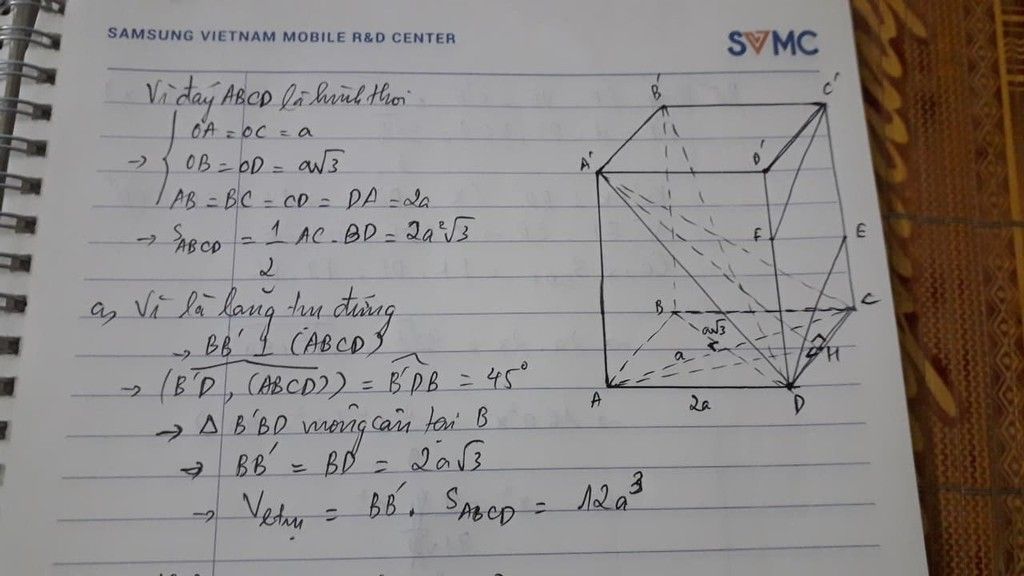 SAMSUNG VIETNAM MOBILE R&D CENTER
SVMC
Vì đáy ABCD là hình thoi
OA = OC = a
→ OB = OD = a√3
AB = BC = CD = DA = 2a
→ S_ABCD = 1/2 AC.BD = 2a²√3
a, Vì là lăng trụ đứng
→ BB' ⊥ (ABCD)
→ (B'D, (ABCD)) = B'DB = 45°
→ Δ B'BD vuông cân tại B
→ BB' = BD = 2a√3
→ V_ltrụ = BB'. S_ABCD = 12a³
B' C'
A' D'
F E
B C
a√3
a H
A D
2a